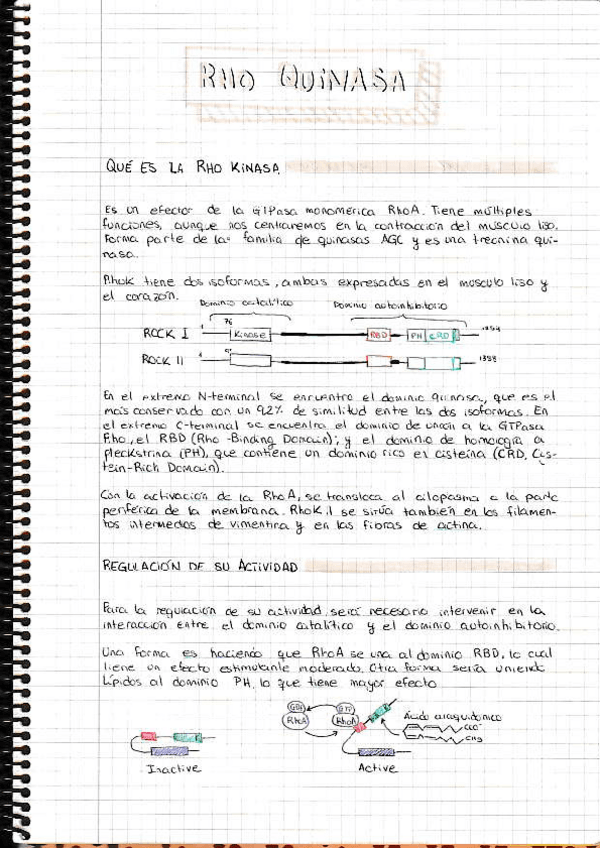 RHO QUINASA
QUÉ ES LA RHO KINASA
Es un efector de la GTPasa monomérica RhoA. Tiene múltiples
funciones, aunque nos centraremos en la contracción del músculo liso.
Forma parte de la familia de quinasas AGC y es una treonina qui-
nasa.
RhoK tiene dos isoformas, ambas expresadas en el músculo liso y
el corazón.
Dominio catalítico Dominio autoinhibitorio
ROCK I 1 76 Kinase RBD PH CRD 1354
ROCK II 1 1388
En el extremo N-terminal se encuentra el dominio quinasa, que es el
más conservado con un 92% de similitud entre las dos isoformas. En
el extremo C-terminal se encuentra el dominio de unión a la GTPasa
Rho, el RBD (Rho-Binding Domain); y el dominio de homología a
pleckstrina (PH), que contiene un dominio rico en cisteína (CRD, Cis-
tein-Rich Domain).
Con la activación de la RhoA, se transloca al citoplasma o la parte
periférica de la membrana. RhoK II se sitúa también en los filamen-
tos intermedios de vimentina y en las fibras de actina.
REGULACIÓN DE SU ACTIVIDAD
Para la regulación de su actividad, será necesario intervenir en la
interacción entre el dominio catalítico y el dominio autoinhibitorio.
Una forma es haciendo que RhoA se una al dominio RBD, lo cual
tiene un efecto estimulante moderado. Otra forma sería uniendo
lípidos al dominio PH, lo que tiene mayor efecto
GDP GTP Ácido araquidónico
RhoA RhoA COO⁻
CH3
Inactive Active